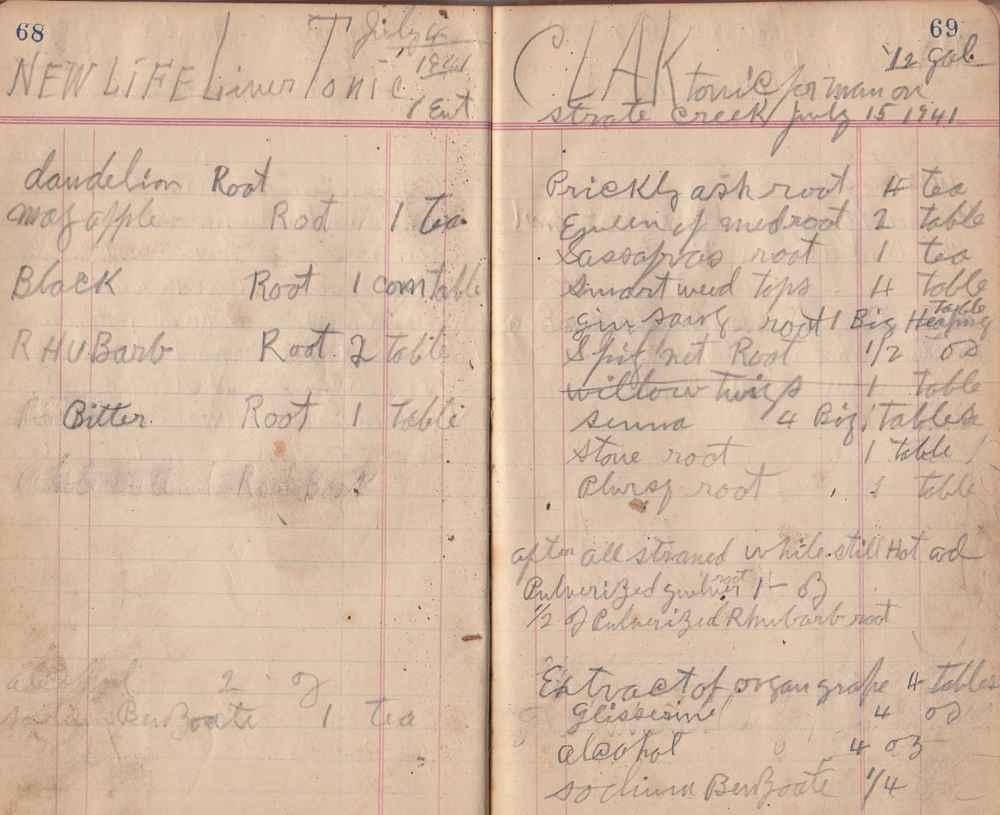 68
July 4
1941
NEW LIFE Liver Tonic
dandelion Root
may apple Root 1 tea
Black Root 1 com table
RHUBarb Root 2 table
Bitter Root 1 table
alcohol 2 oz
sodium BenZoate 1 tea
69
1/2 gal
CLAK tonic for man on
strate Creek July 15 1941
PricKly ash root 4 tea
Queen of medroot 2 table
Sassafras root 1 tea
Smart weed tops 4 table
gin sang root 1 Big Heaping table
Spig net Root 1/2 oz
willow twigs 1 table
senna 4 Big tables
Stone root 1 table
Plursy root 1 table
after all straned while still Hot ad
PulveriZed root 1 - oZ
1/2 oz PulveriZed Rhubarb root
Extract of organ grape 4 tables
Glisserine 4 oz
alcohol 4 oz
sodium BenZoate 1/4